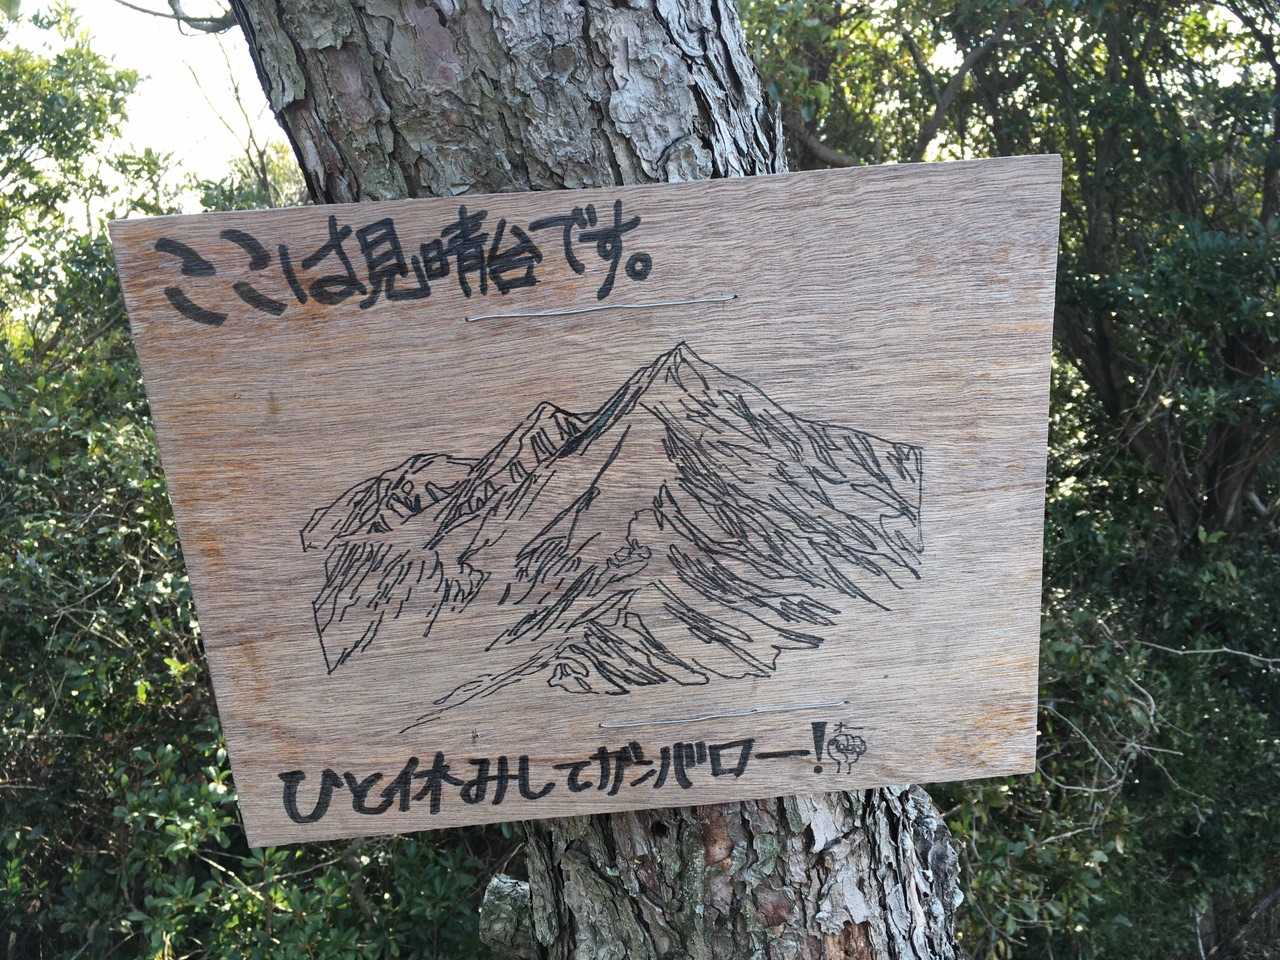 ここは見晴台です。
ひと休みしてガンバロー!